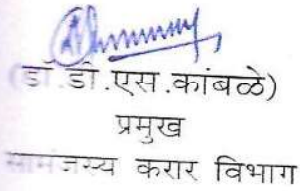 (डॉ.डी.एस.कांबळे)
प्रमुख
सामंजस्य करार विभाग